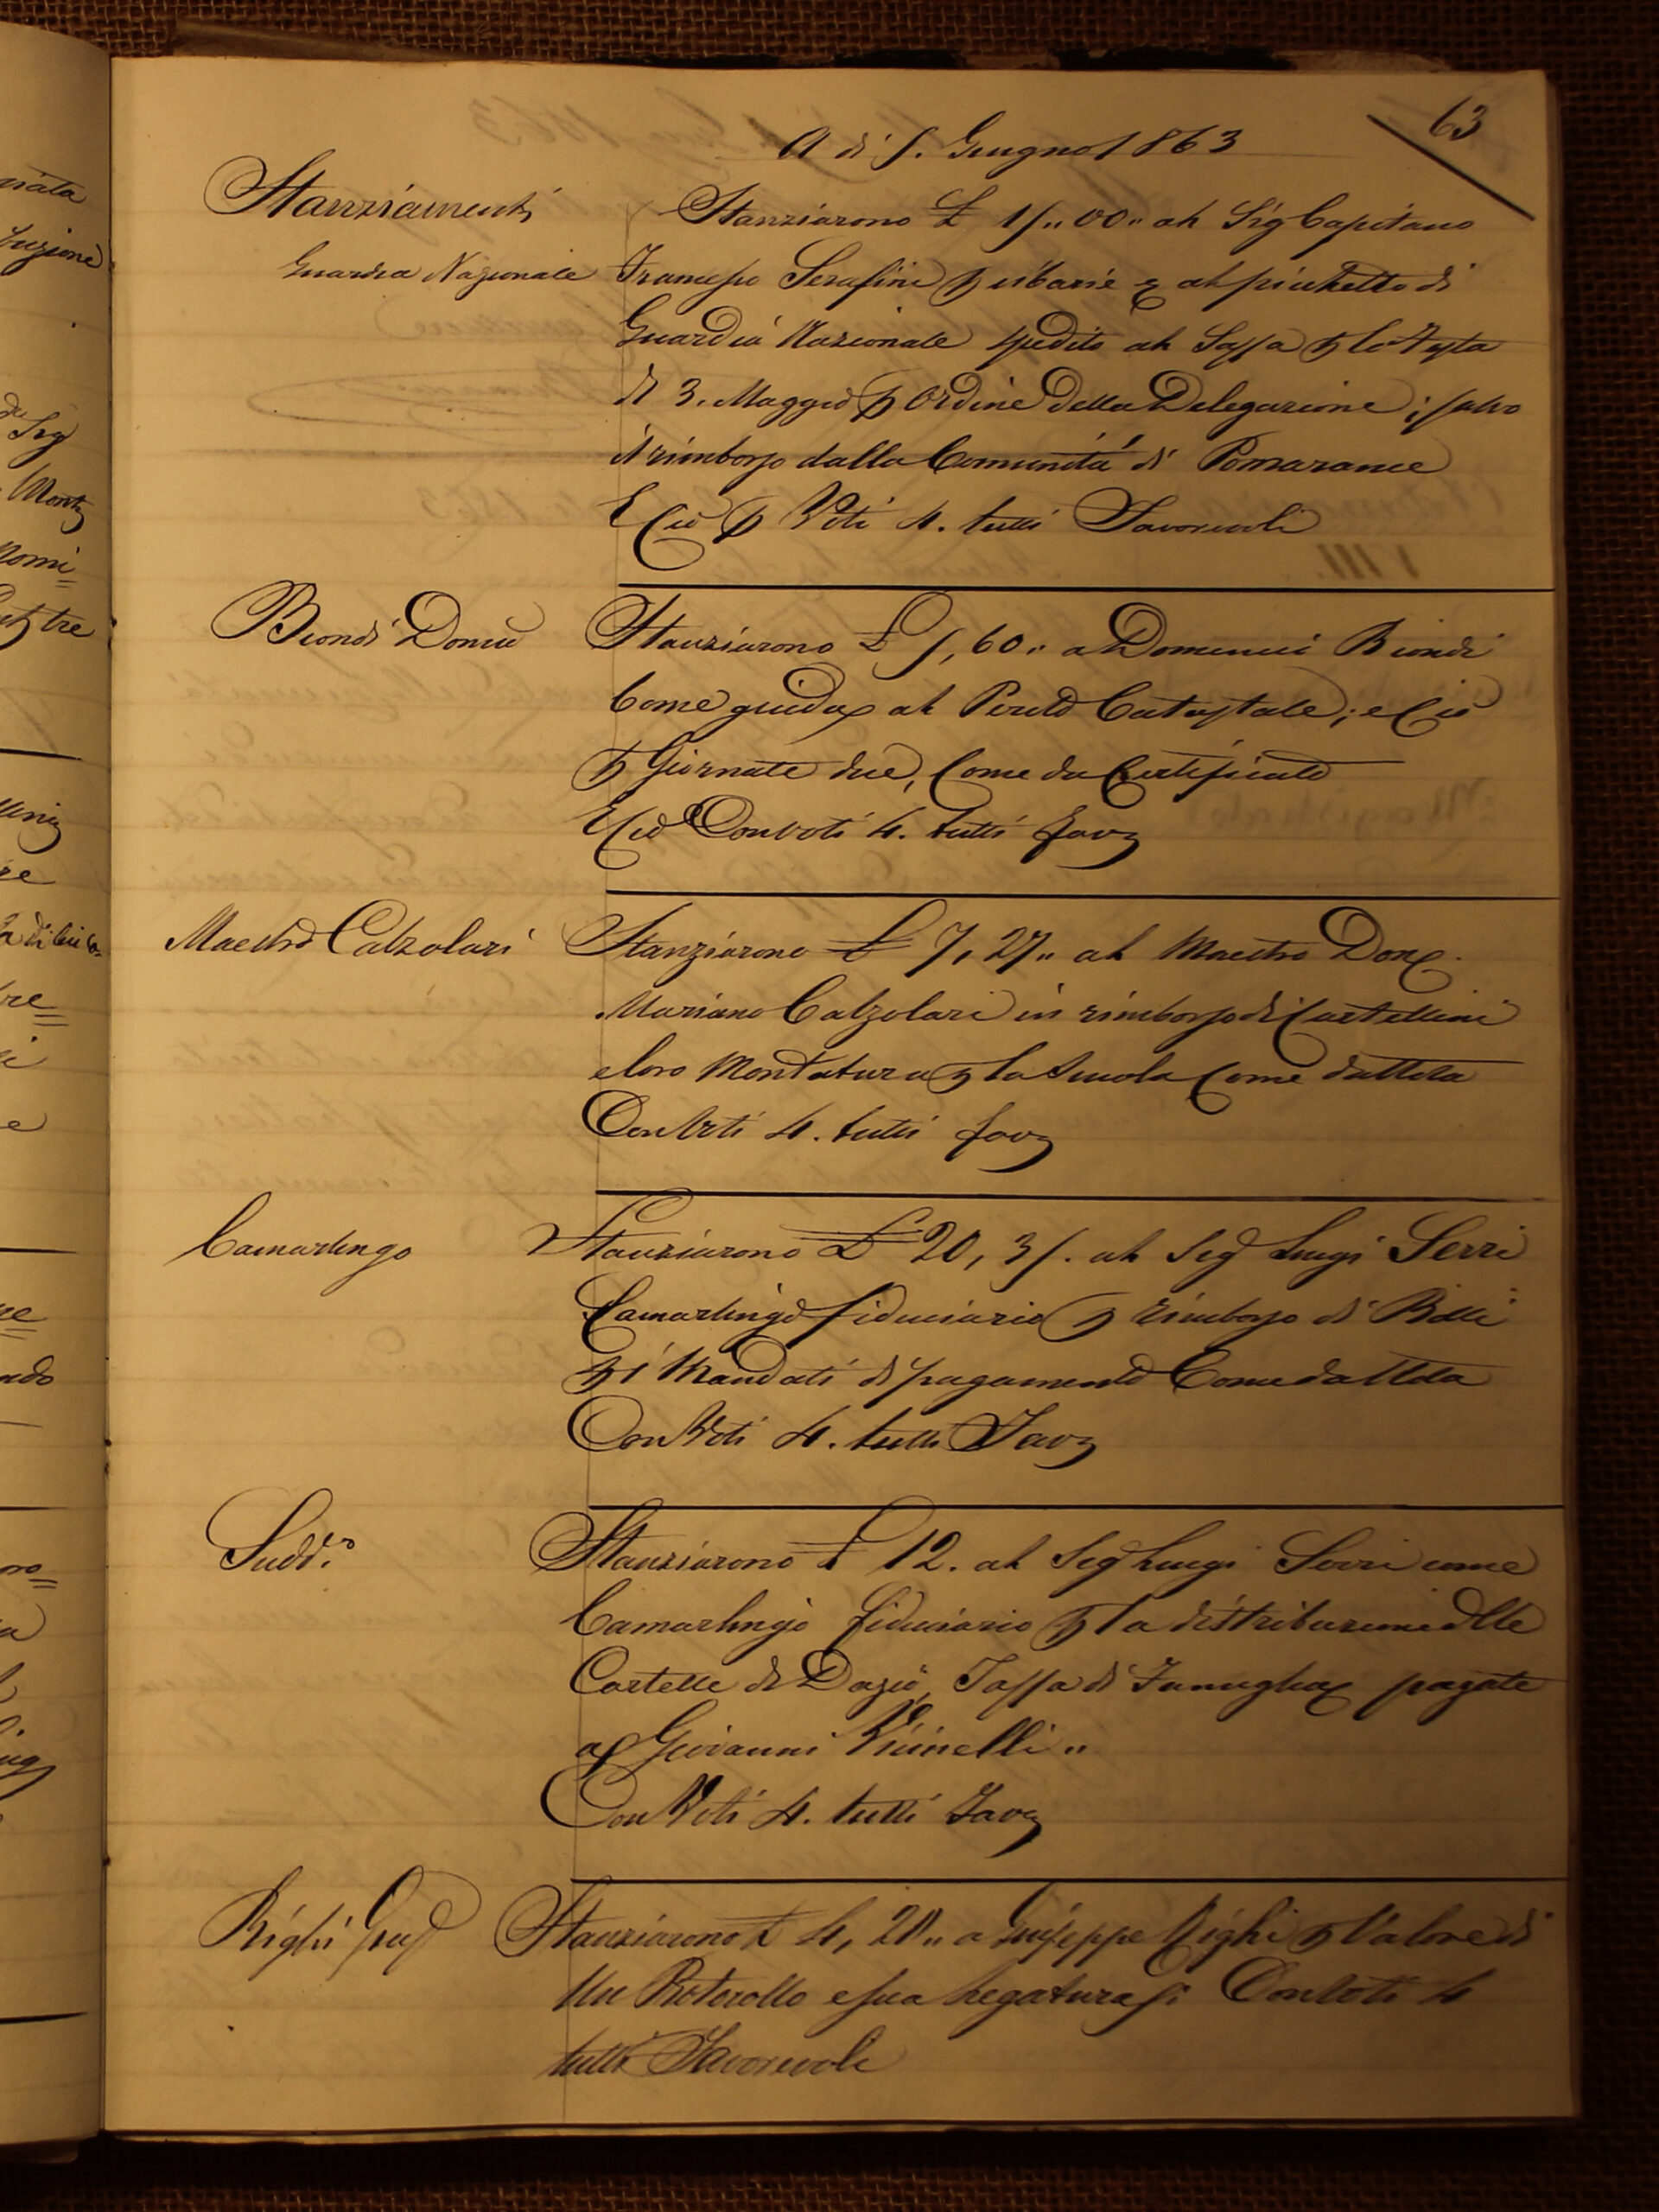 63
A dì 5. Giugno 1863
Stanziamenti
Guardia Nazionale
Stanziarono £ 15,,00,, al Sig Capitano
Francesco Serafini p cibarie al picchetto di
Guardia Nazionale spedito al Sasso p la Festa
di 3. Maggio p Ordine della Delegazione; salvo
il rimborso dalla Comunità di Pomarance
E Ciò p Voti 4. tutti Favorevoli
Biondi Domco
Stanziarono £ 5,60,, a Domenico Biondi
Come guida al Perito Catastale; e Ciò
p Giornate due, Come da Certificato
E Ciò Con voti 4. tutti favi
Maestro Calzolari
Stanziarono £ 7,27,, al Maestro Don
Mariano Calzolari in rimborso di Cartellini
e loro Montatura p la Scuola Come da Nota
Con Voti 4. tutti favi
Camarlingo
Stanziarono £ 20,35. al Sig Luigi Serri
Camarlingo fiduciario p rimborso di Bolli
p i Mandati di pagamento Come da Nota
Con Voti 4. tutti Favi
Sudd.o
Stanziarono £ 12. al Sig Luigi Serri come
Camarlingo fiduciario p la distribuzione delle
Cartelle di Dazio, Tassa di Famiglia pagate
a Giovanni Vicinelli,,
Con Voti 4. tutti Favi
Righi Giuse
Stanziarono £ 4,20,, a Giuseppe Righi p Valore di
Un Protocollo e sua Legatura Con Voti 4
tutti Favorevoli